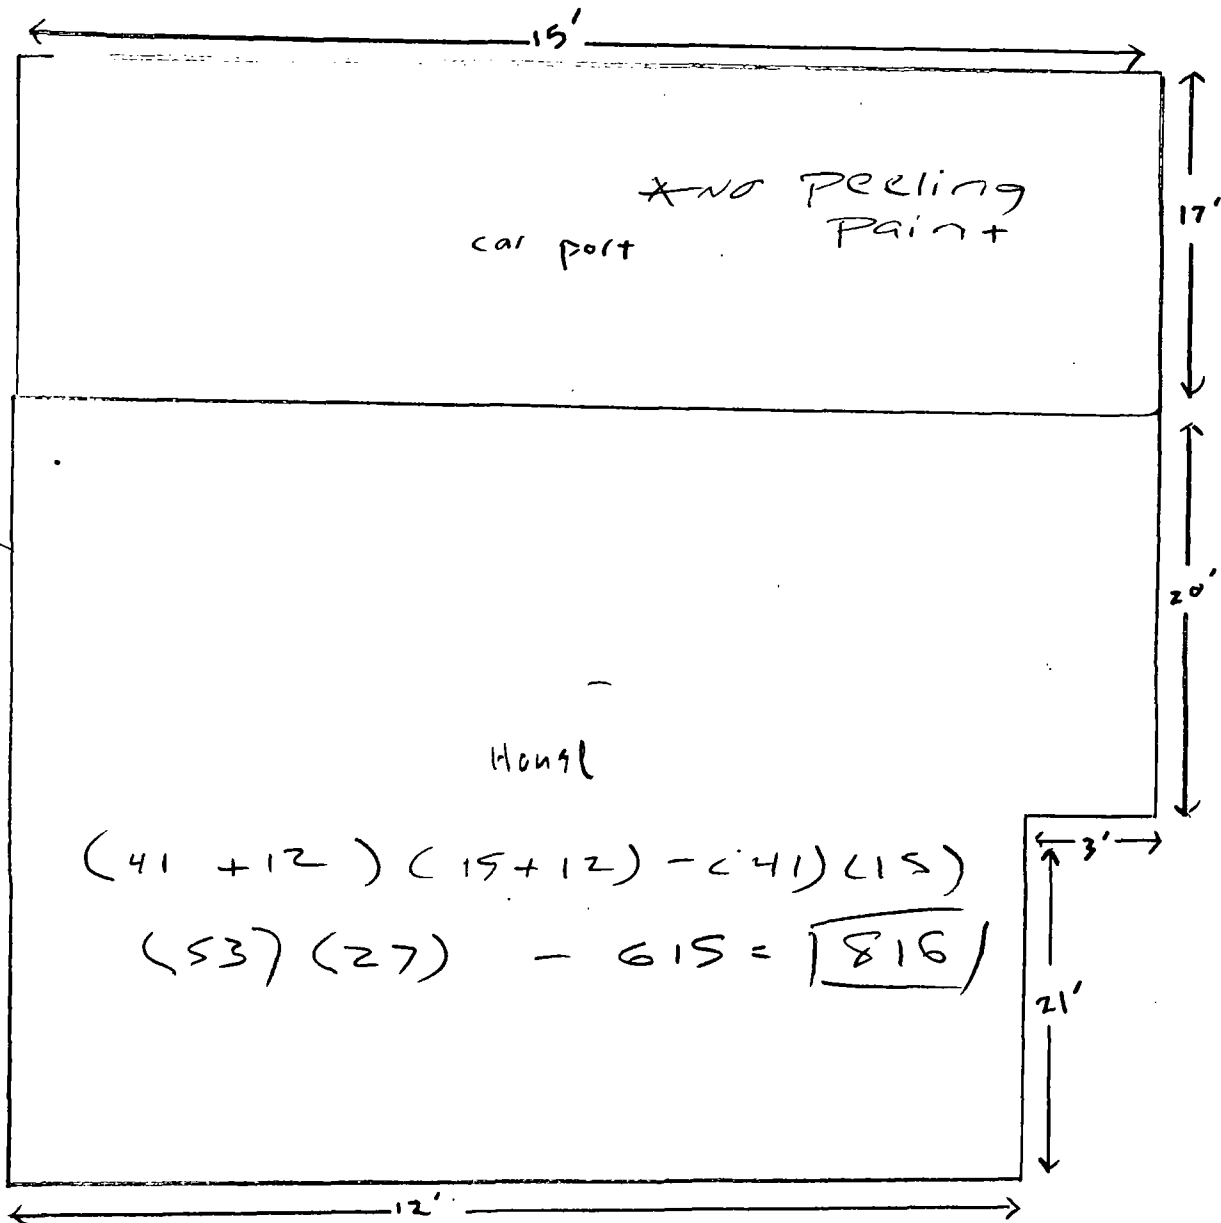 15'
*NO Peeling
Paint
17'
car port
20'
House
3'
(41 + 12) (15+12) - (41)(15)
(53)(27) - 615 = 816
21'
12'